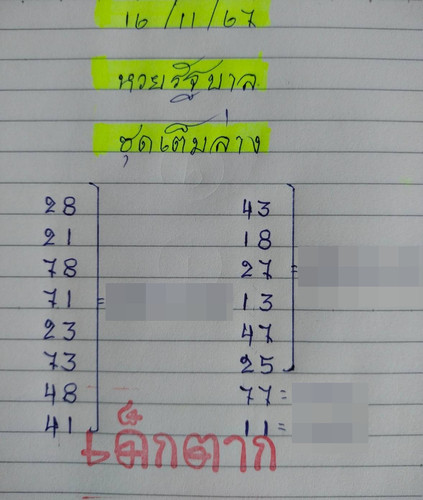 16/11/67
หวยรัฐบาล
ชุดเต็มล่าง
28
21
78
71 =
23
73
48
41
43
18
27 =
13
47
25
77 =
11 =
เด็กตาก